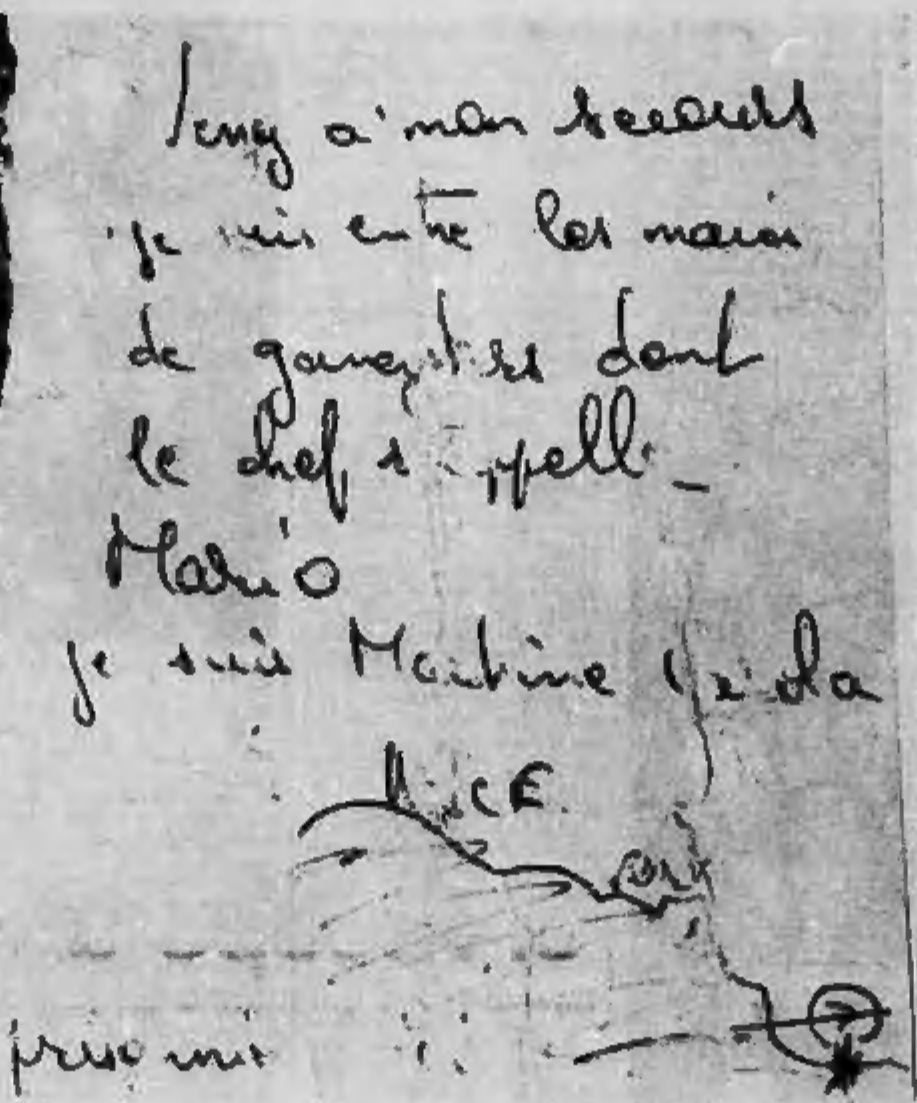 Venez à mon secours
je suis entre les mains
de gangsters dont
le chef s'appelle
Mario
je suis Martine
NICE